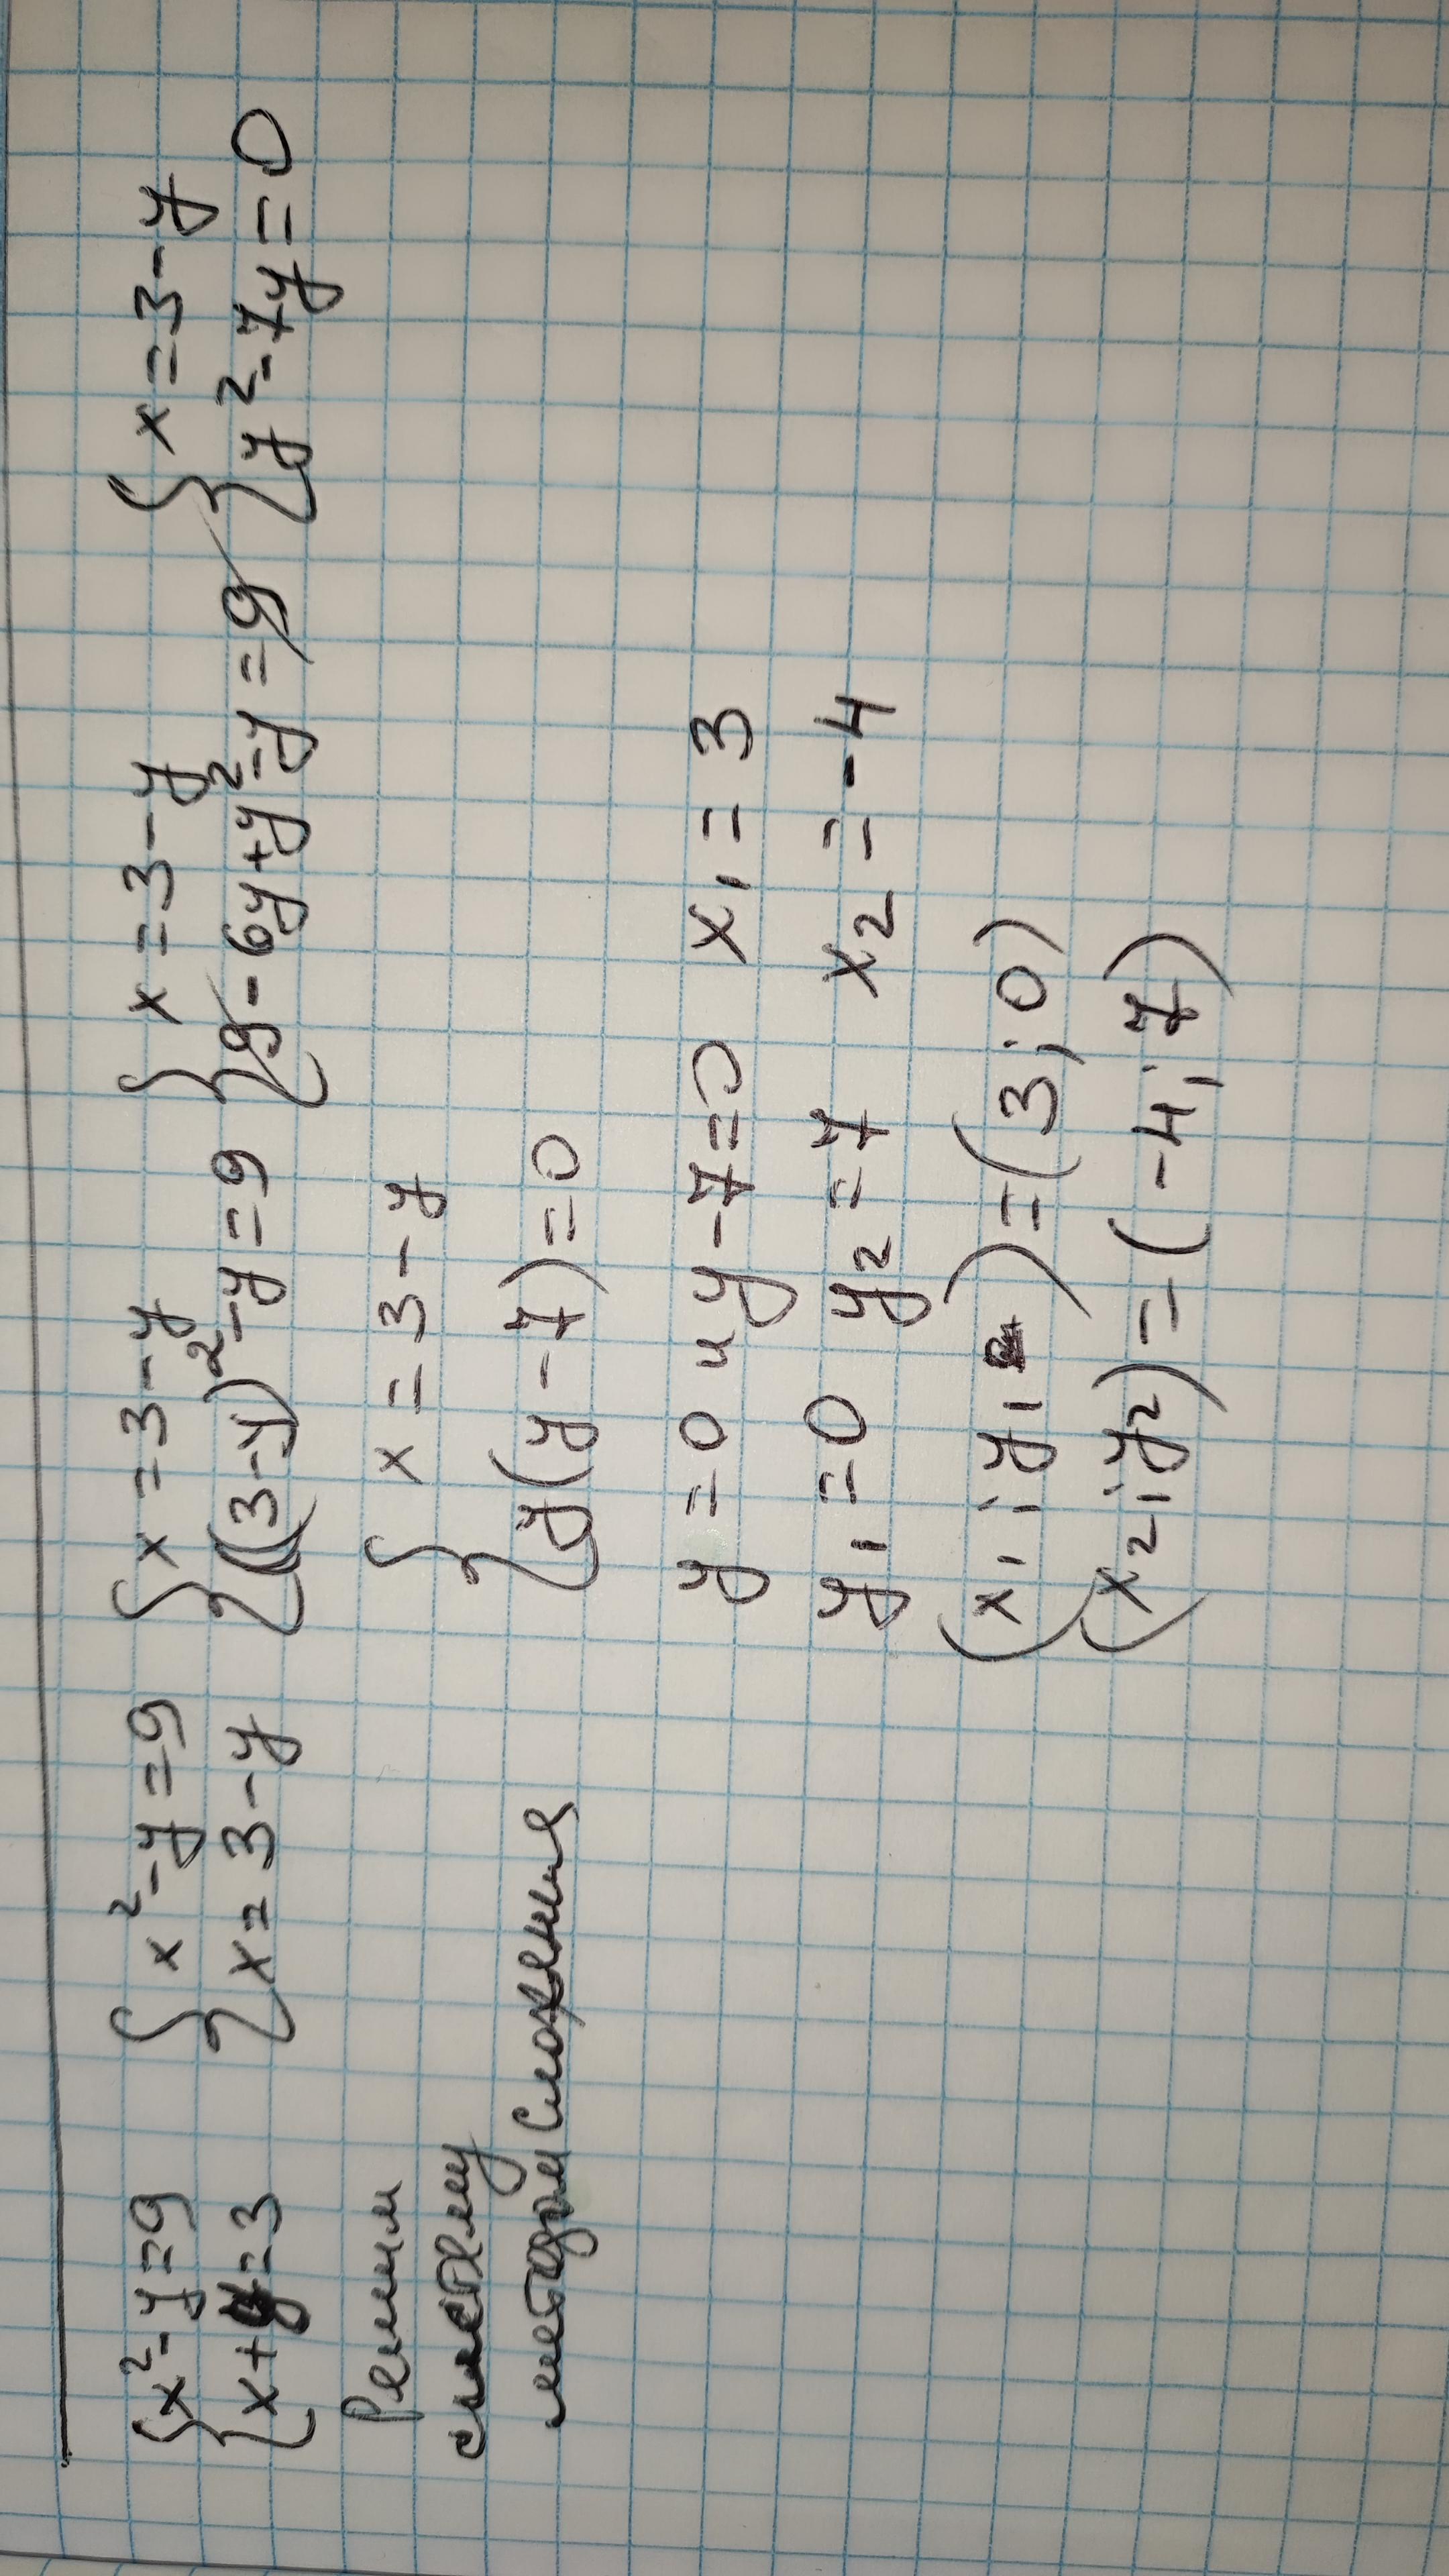 { x² - y = 9 { x² - y = 9 { x = 3 - y { x = 3 - y { x = 3 - y
{ x + y = 3 { x = 3 - y { (3 - y)² - y = 9 { 9 - 6y + y² - y = 9 { y² - 7y = 0
Решим { x = 3 - y
систему
методом Сложения { y(y - 7) = 0
y = 0 и y - 7 = 0 x₁ = 3
y₁ = 0 y₂ = 7 x₂ = -4
(x₁; y₁) = (3; 0)
(x₂; y₂) = (-4; 7)